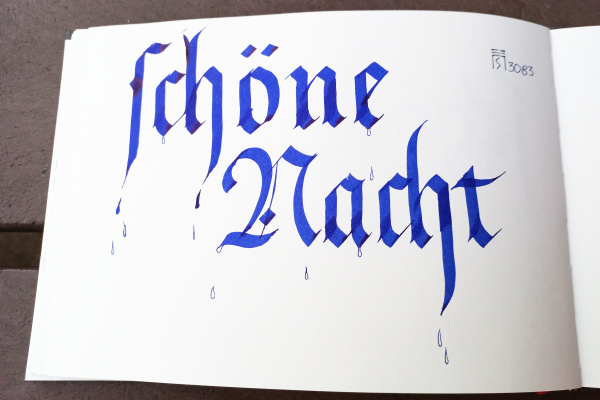 schöne
Nacht
3083